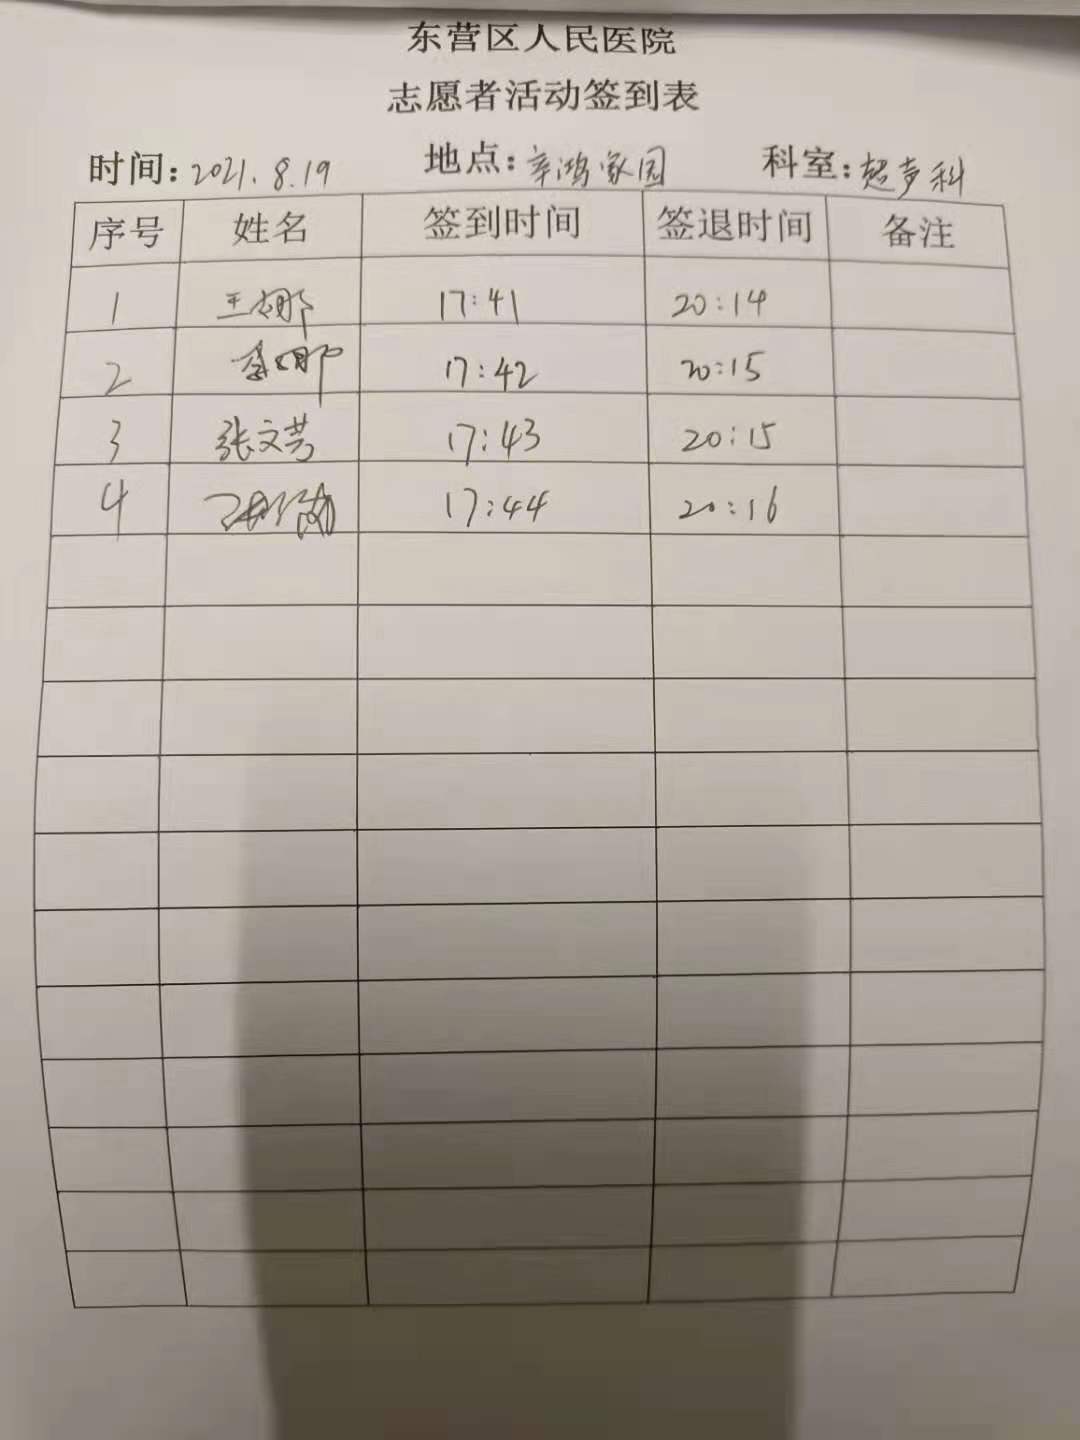 东营区人民医院
志愿者活动签到表
时间:2021.8.19 地点:辛鸿家园 科室:超声科
序号 姓名 签到时间 签退时间 备注
1 王娜 17:41 20:14
2 李娜 17:42 20:15
3 张文芸 17:43 20:15
4 17:44 20:16